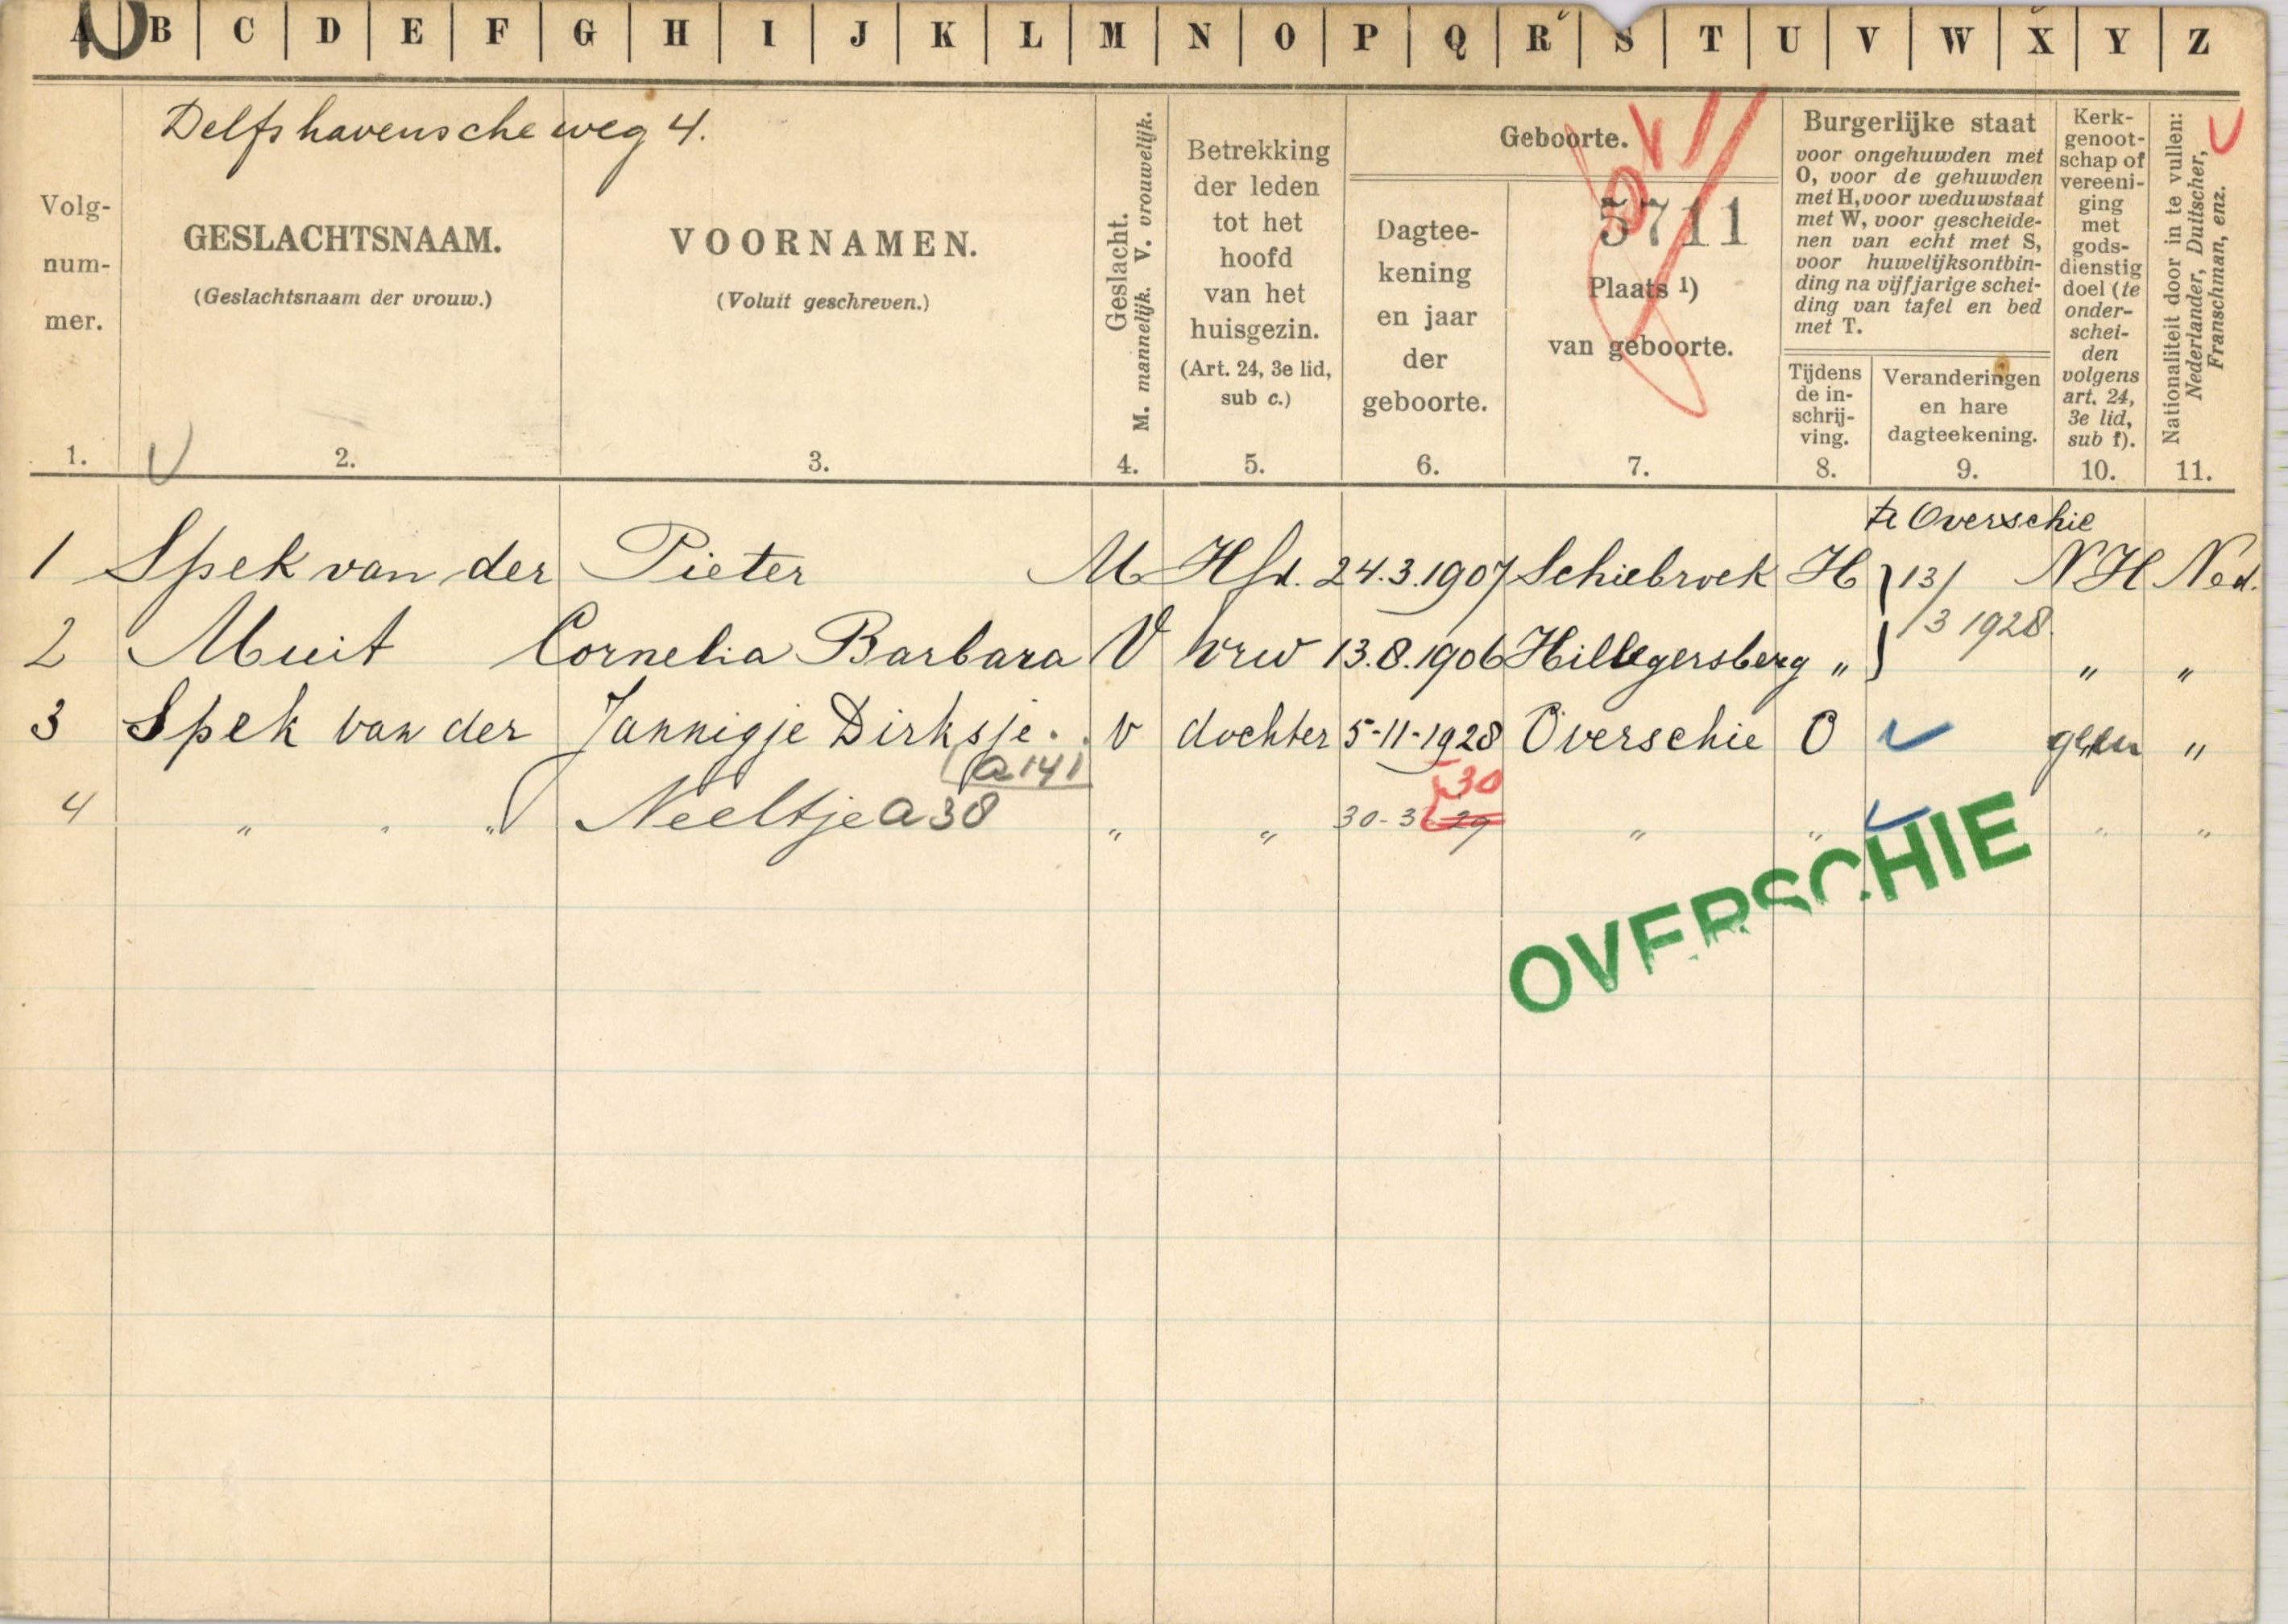 A B C D E F G H I J K L M N O P Q R S T U V W X Y Z
Delfshavenscheweg 4.
Volg-
num-
mer.
1.
GESLACHTSNAAM.
(Geslachtsnaam der vrouw.)
2.
VOORNAMEN.
(Voluit geschreven.)
3.
Geslacht.
M. mannelijk. V. vrouwelijk.
4.
Betrekking
der leden
tot het
hoofd
van het
huisgezin.
(Art. 24, 3e lid,
sub c.)
5.
Geboorte.
Dagtee-
kening
en jaar
der
geboorte.
6.
5711
Plaats 1)
van geboorte.
7.
Burgerlijke staat
voor ongehuwden met
O, voor de gehuwden
met H, voor weduwstaat
met W, voor gescheide-
nen van echt met S,
voor huwelijksontbin-
ding na vijfjarige schei-
ding van tafel en bed
met T.
Tijdens
de in-
schrij-
ving.
8.
Veranderingen
en hare
dagteekening.
9.
Kerk-
genoot-
schap of
vereeni-
ging
met
gods-
dienstig
doel (te
onder-
schei-
den
volgens
art. 24,
3e lid,
sub f).
10.
Nationaliteit door in te vullen:
Nederlander, Duitscher,
Franschman, enz.
11.
te Overschie
1 Spek van der Pieter M Hfd. 24.3.1907 Schiebroek H } 13/ NH Ned.
/3 1928.
2 Muit Cornelia Barbara V vrw 13.8.1906 Hillegersberg " } " "
3 Spek van der Jannigje Dirksje. V dochter 5-11-1928 Overschie O geen "
a 141
30
4 " " " Neeltje a 38 " " 30-3 29 " " " "
OVERSCHIE